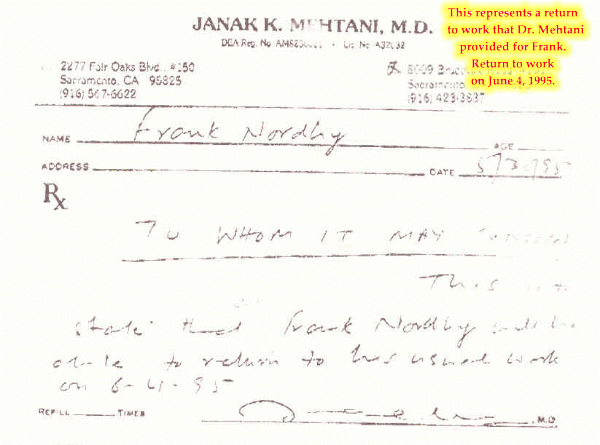 JANAK K. MEHTANI, M.D.
DEA Reg. No. Lic No. A32032
2277 Fair Oaks Blvd., #150
Sacramento, CA 95825
(916) 567-6622
8009
Sacramento
(916) 423-3837
This represents a return
to work that Dr. Mehtani
provided for Frank.
Return to work
on June 4, 1995.
NAME Frank Nordby AGE
ADDRESS DATE
Rx
TO WHOM IT MAY
This is to
state that Frank Nordby will be
able to return to his usual work
on 6-4-95
REFILL TIMES M.D.